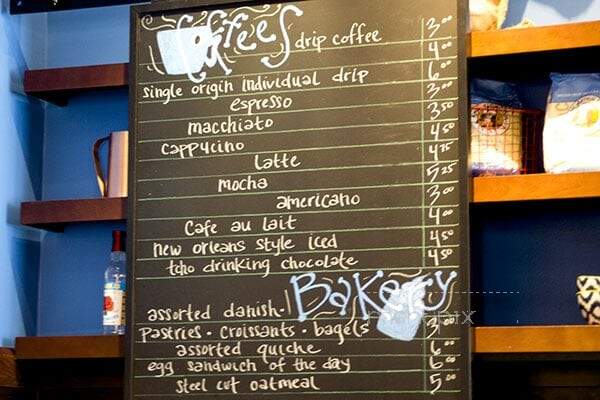 Coffees
drip coffee 3.00
4.00
single origin individual drip 6.00
espresso 3.00
macchiato 3.50
cappucino 4.50
latte 4.75
mocha 5.25
americano 3.00
cafe au lait 4.00
new orleans style iced 4.50
tcho drinking chocolate 4.50
Bakery
assorted danish-
pastries · croissants · bagels 3.00
assorted quiche 6.00
egg sandwich of the day 6.00
steel cut oatmeal 5.00